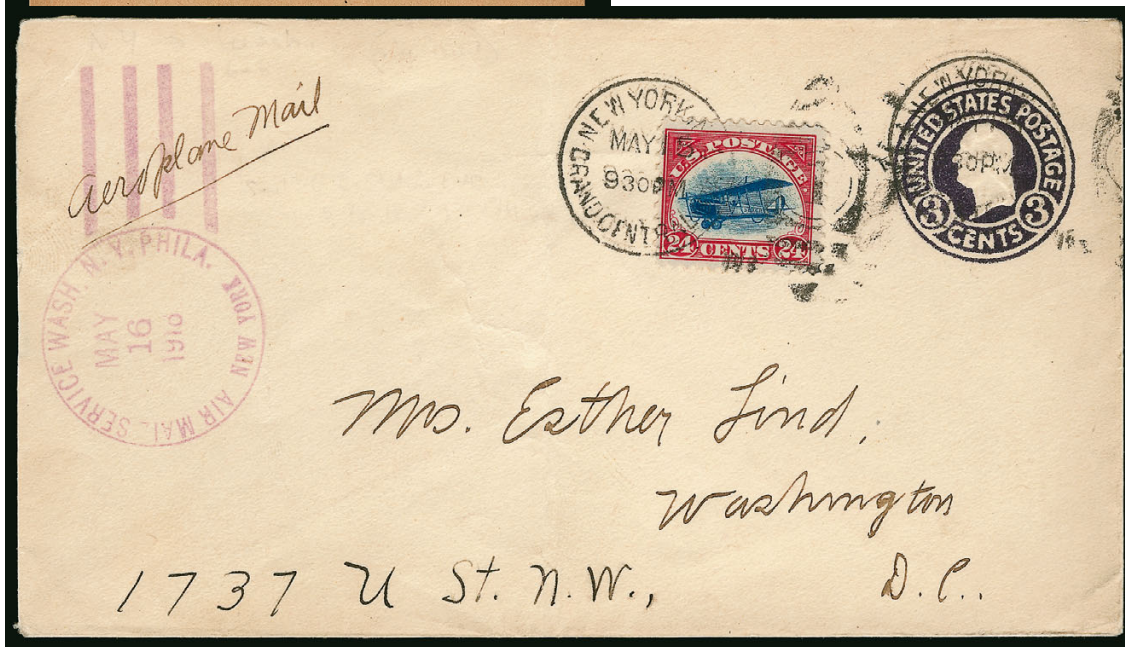 aeroplane Mail
AIR MAIL SERVICE WASH. N.Y. PHILA.
NEW YORK
MAY
16
1918
NEW YORK
MAY 15
930PM
GRAND CENT
U.S. POSTAGE.
24 CENTS 24
NEW YORK
UNITED STATES POSTAGE
30PM
3 CENTS 3
Mrs. Esther Lind,
Washington
1737 U St. N.W.,
D.C..